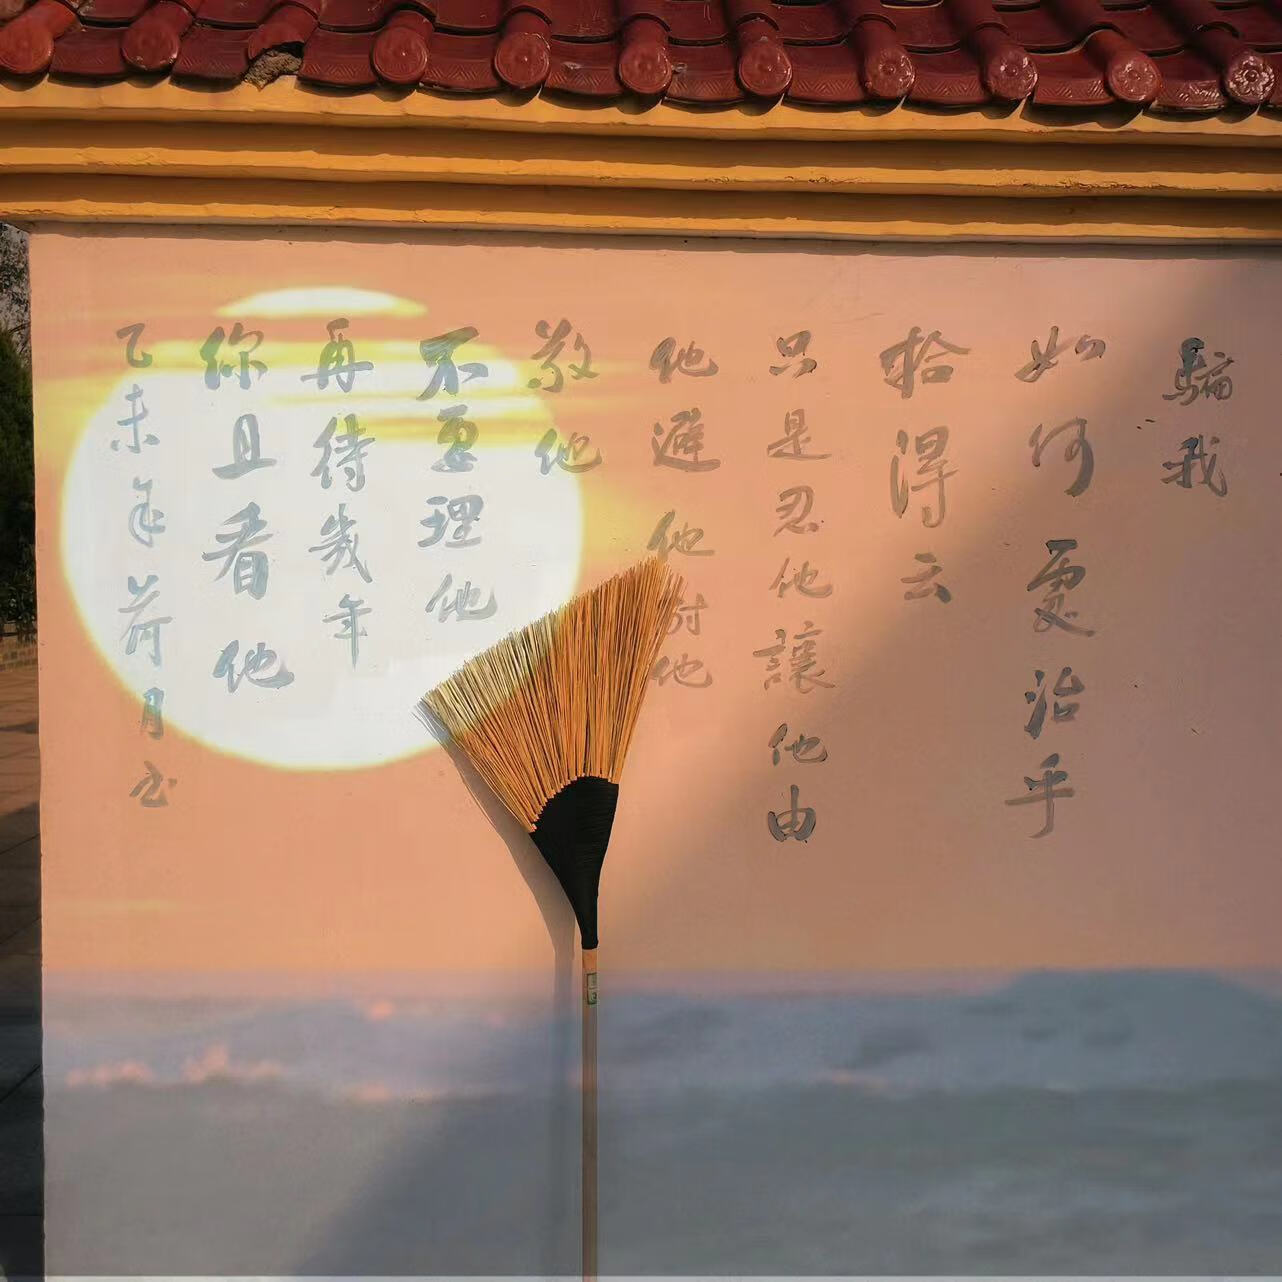 騙我
如何處治乎
拾得云
只是忍他讓他由
他避他他耐他
敬他
不要理他
再待幾年
你且看他
乙未年荷月书